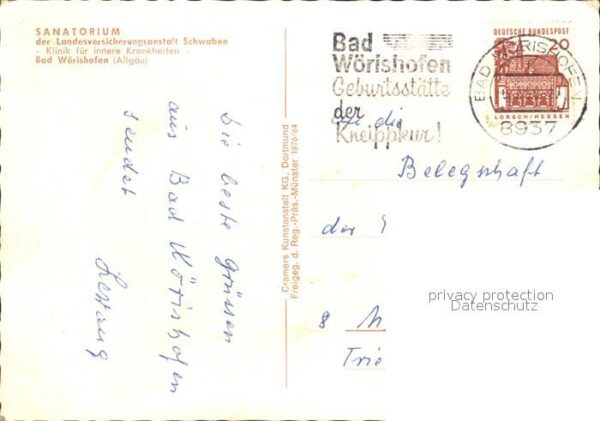 SANATORIUM
der Landesversicherungsanstalt Schwaben
- Klinik für innere Krankheiten -
Bad Wörishofen (Allgäu)
Die beste Grüssen
aus Bad Wörishofen
sendet
Cramers Kunstanstalt KG, Dortmund
Freigeg. d. Reg.-Präs.-Münster 1976/64
Bad
Wörishofen
Geburtsstätte
der
Kneippkur!
DEUTSCHE BUNDESPOST
20
LORSCH/HESSEN
BAD WÖRISHOFEN
8937
An die
Belegschaft
der
8 M
Trie
privacy protection
Datenschutz